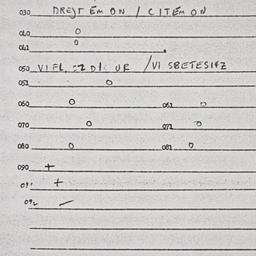 030 DREJT EM ON / CITEM ON
040 0
041 0
050 VI FL / VI SBETESIFZ
051 0
060 0 061 0
070 0 071 0
080 0 081 0
090 +
091 +
092 -